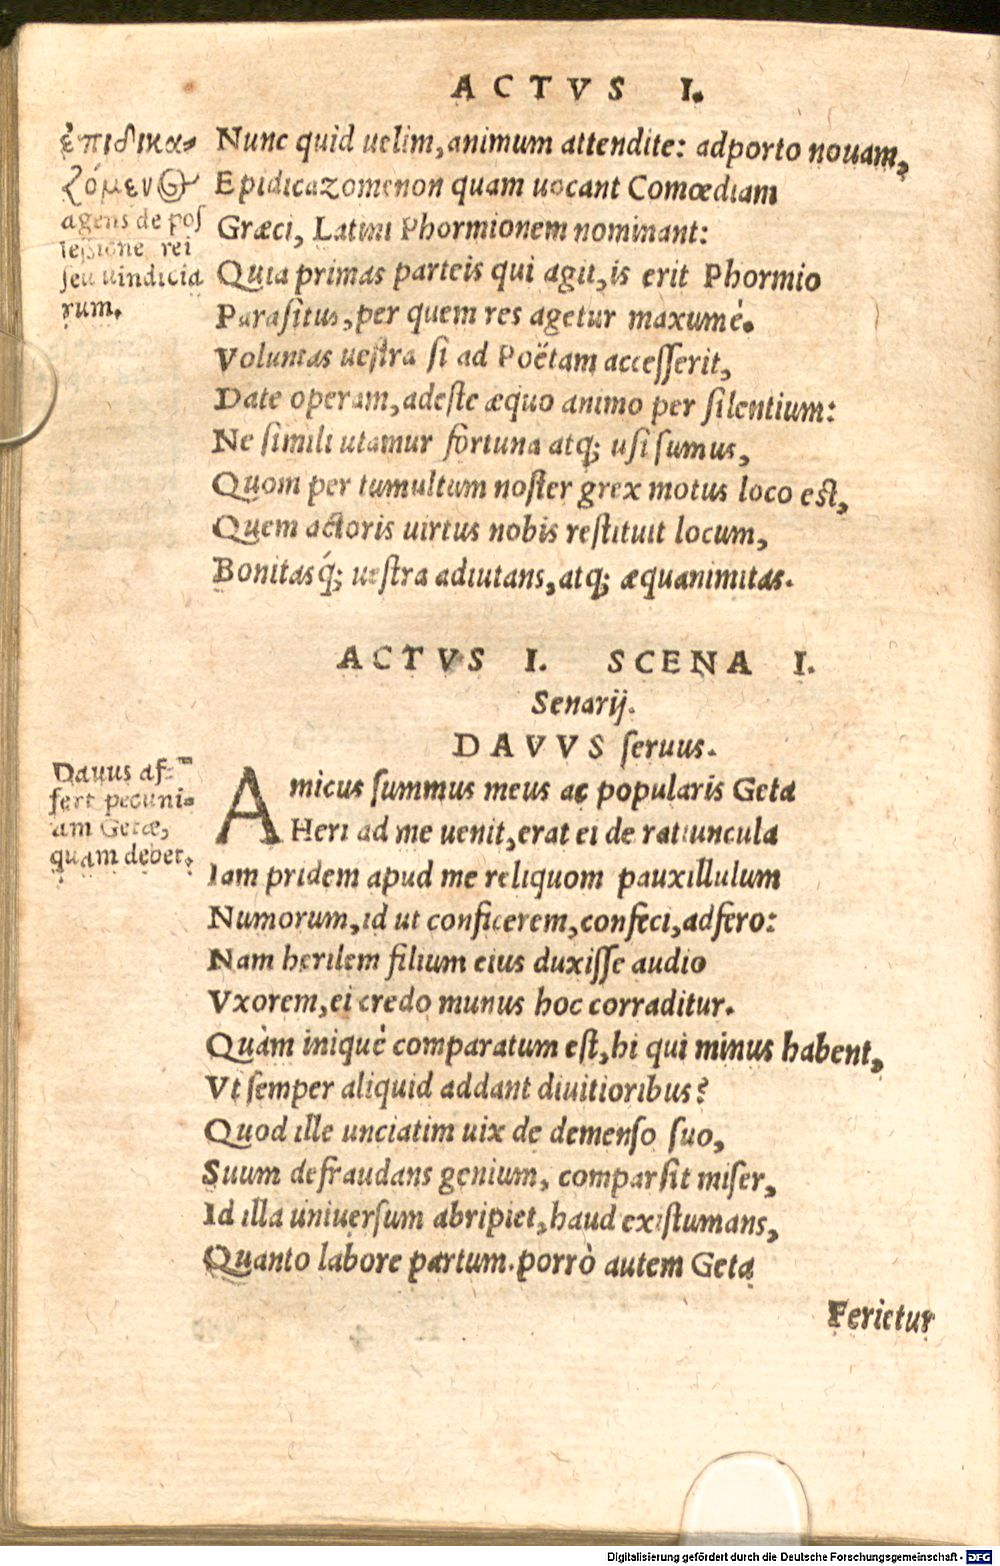 ACTVS I.
ἐπιδικα-
ζόμενος
agens de pos
sessione rei
seu uindicia
rum.
Nunc quid uelim, animum attendite: adporto nouam,
Epidicazomenon quam uocant Comœdiam
Græci, Latini Phormionem nominant:
Quia primas parteis qui agit, is erit Phormio
Parasitus, per quem res agetur maxumè.
Voluntas uestra si ad Poëtam accesserit,
Date operam, adeste æquo animo per silentium:
Ne simili utamur fortuna atq; usi sumus,
Quom per tumultum noster grex motus loco est,
Quem actoris uirtus nobis restituit locum,
Bonitasq́; uestra adiutans, atq; æquanimitas.
ACTVS I. SCENA I.
Senarij.
DAVVS seruus.
Dauus af-
fert pecuni-
am Getæ,
quam debet.
Amicus summus meus ac popularis Geta
Heri ad me uenit, erat ei de ratiuncula
Iam pridem apud me reliquom pauxillulum
Numorum, id ut conficerem, confeci, adfero:
Nam herilem filium eius duxisse audio
Vxorem, ei credo munus hoc corraditur.
Quàm iniquè comparatum est, hi qui minus habent,
Vt semper aliquid addant diuitioribus?
Quod ille unciatim uix de demenso suo,
Suum defraudans genium, comparsit miser,
Id illa uniuersum abripiet, haud existumans,
Quanto labore partum. porrò autem Geta
Ferietur
Digitalisierung gefördert durch die Deutsche Forschungsgemeinschaft - DFG